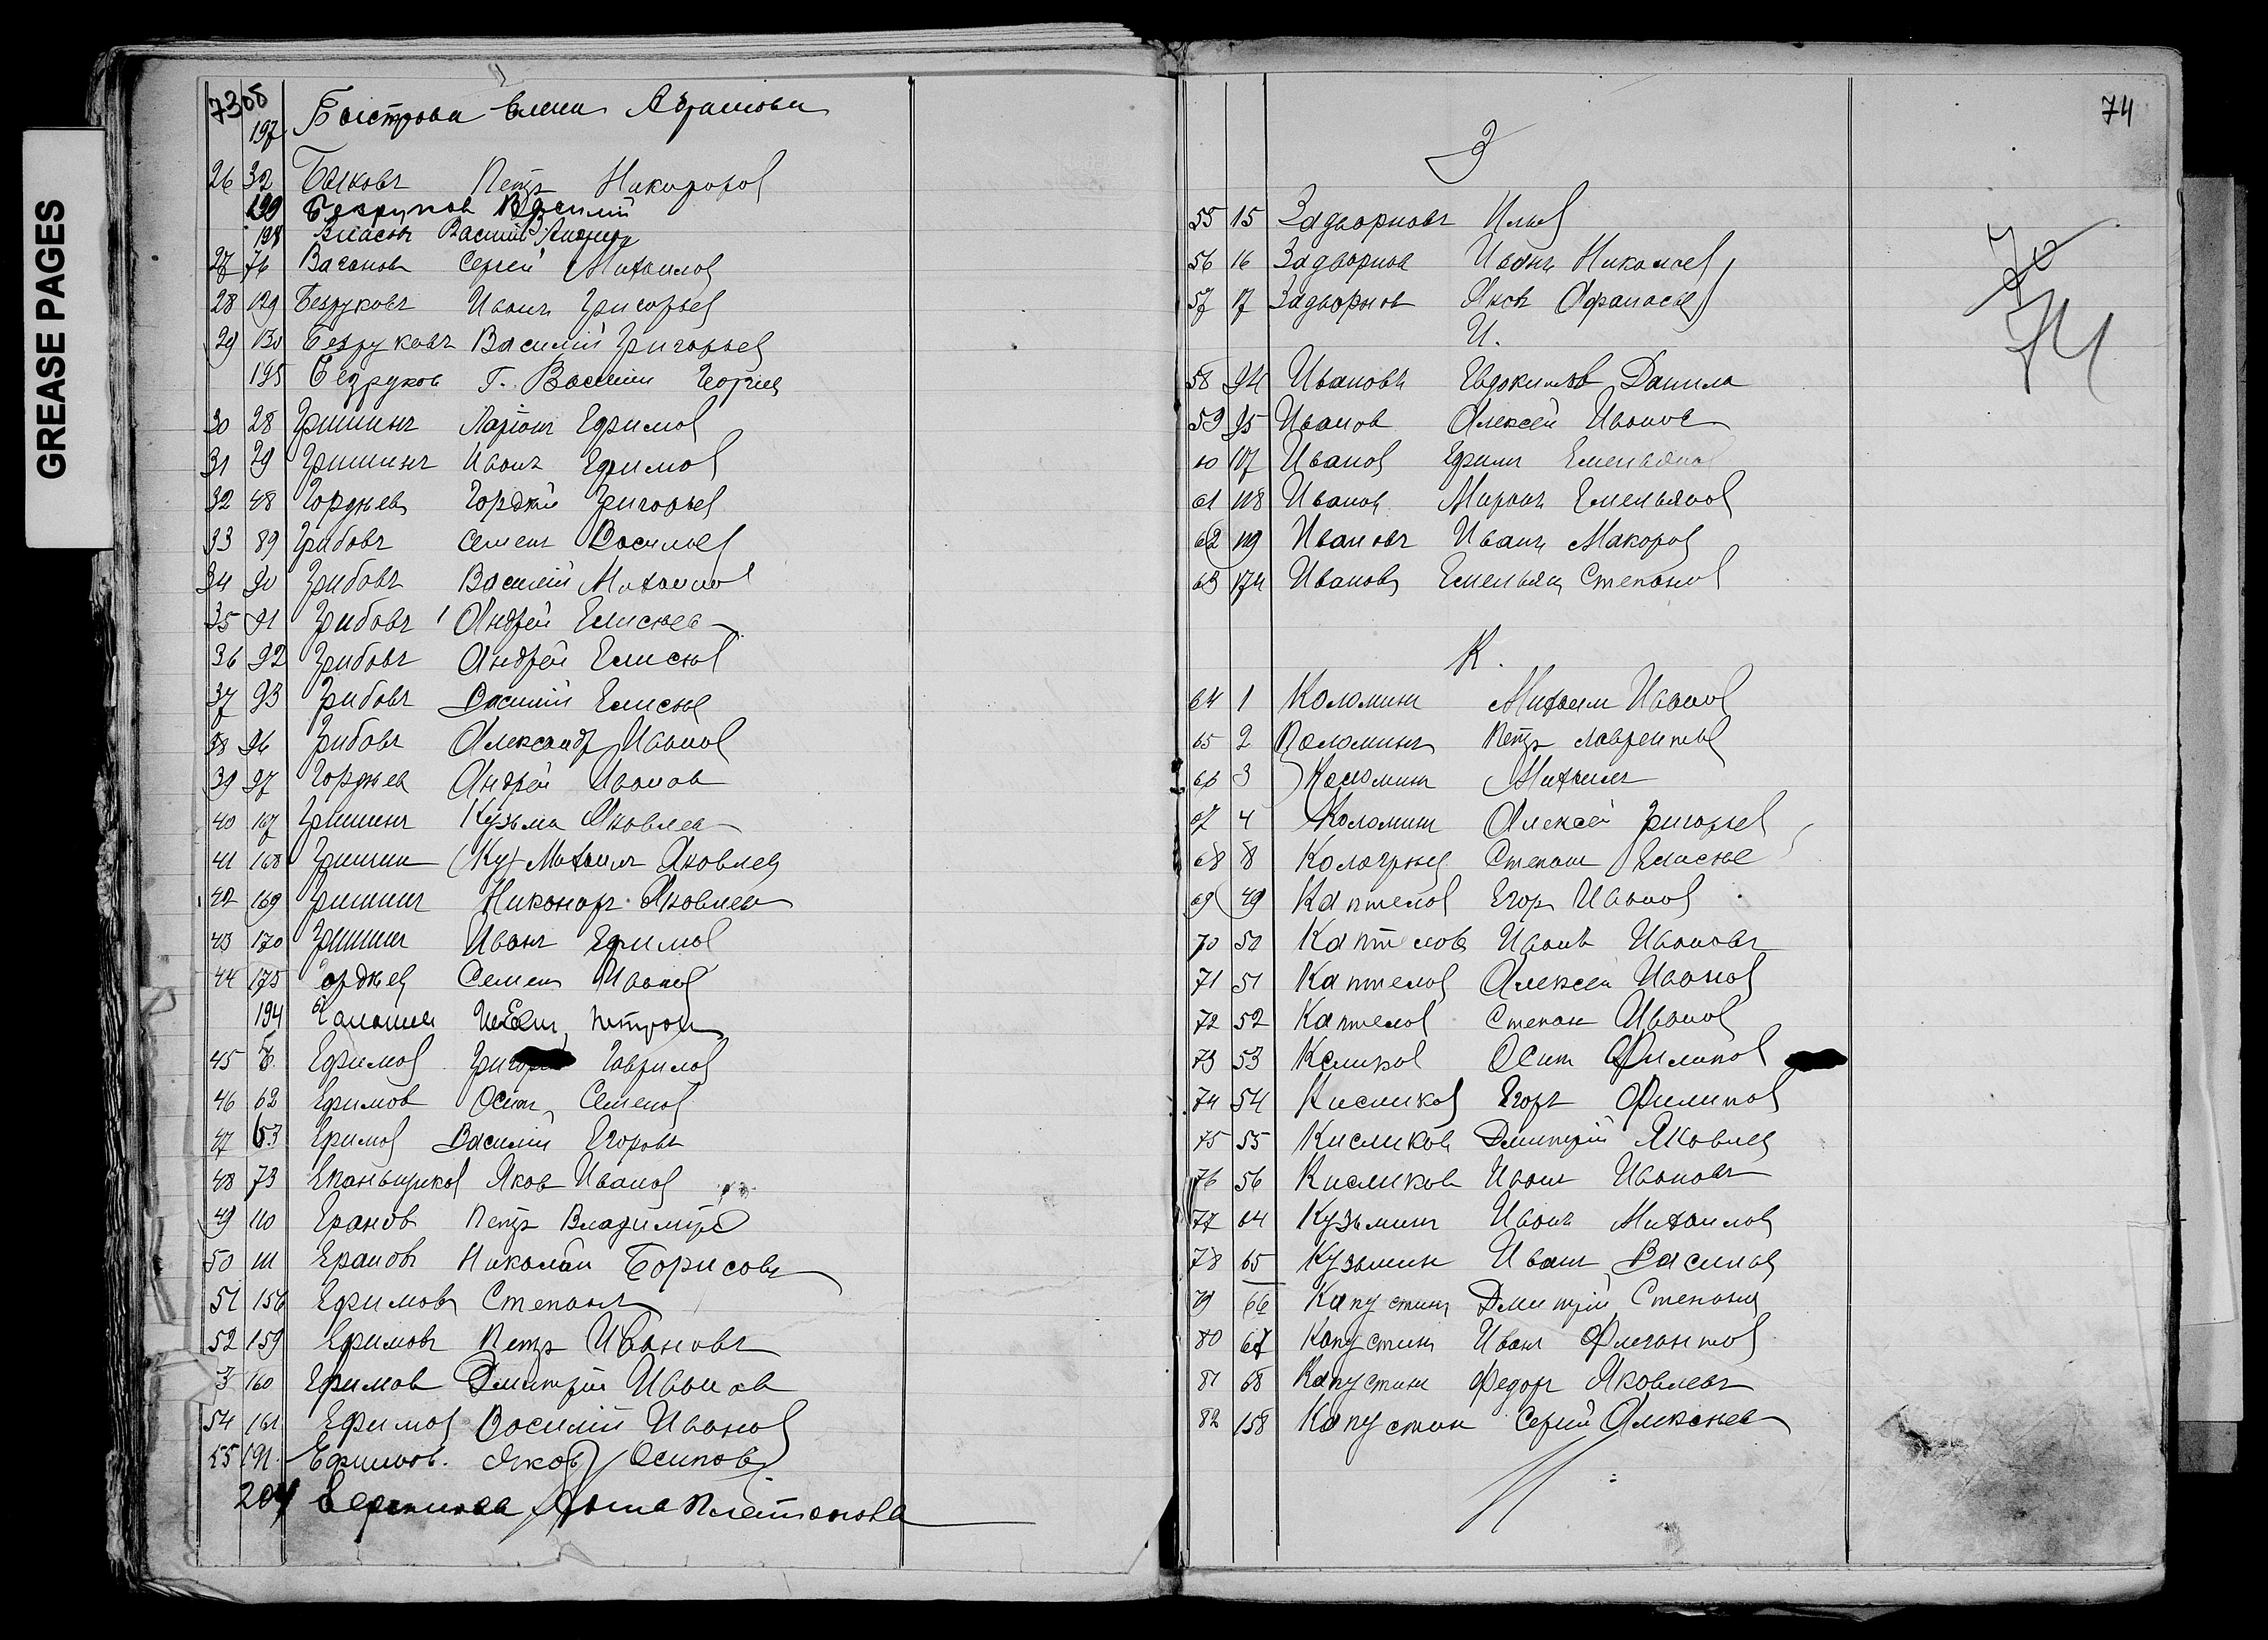 GREASE PAGES
73об
197 Быстрова Елена Абрамова
26 32 Быковъ Петръ Никифоров
199 Безруков Василий
198 Власовъ Василий
27 76 Ваганов Сергей Михаилов
28 129 Безруковъ Иванъ Григорьев
29 130 Безруковъ Василий Григорьев
195 Безруков Г. Василий Георгиев
30 28 Гришинъ Ларіонъ Ефимов
31 29 Гришинъ Иванъ Ефимов
32 48 Гордѣевъ Гордѣй Григорьев
33 89 Грибовъ Семенъ Васильев
34 90 Грибовъ Василій Михаилов
35 91 Грибовъ Андрей Елисѣев
36 92 Грибовъ Андрей Елисѣев
37 93 Грибовъ Василій Елисѣев
38 96 Грибовъ Александр Иванов
39 97 Гордѣев Андрей Иванов
40 167 Гришинъ Кузьма Яковлев
41 168 Гришин (Ку) Михаилъ Яковлев
42 169 Гришинъ Никоноръ Яковлев
43 170 Гришинъ Иванъ Ефимов
44 175 Гордѣев Семенъ Иванов
194
45 Ефимов Григорий Гаврилов
46 62 Ефимов Осипъ Семенов
47 63 Ефимов Василій Егоровъ
48 73 Епанышков Яков Иванов
49 110 Ерановъ Петръ Владимиров
50 111 Ерановъ Николай Борисовъ
51 156 Ефимовъ Степанъ
52 159 Ефимовъ Петръ Ивановъ
3 160 Ефимов Дмитрій Иванов
54 161 Ефимов Василій Иванов
55 191. Ефимов. Яков Осипов
204 Анна Платонова
74
З
70
74
55 15 Задворновъ Илья
56 16 Задворнов Иванъ Николаев
57 17 Задворнов Яковъ Афанасьев
И.
58 94 Ивановъ Евдокимов Данила
59 95 Иванов Алексей Иванов
60 107 Иванов Ефимъ Емельянов
61 108 Иванов Миронъ Емельянов
62 119 Ивановъ Иванъ Макаров
63 174 Ивановъ Емельян Степанов
К.
64 1 Коломинъ Михаилъ Иванов
65 2 Коломинъ Петръ Лаврентьев
66 3 Коломинъ Михаилъ
67 4 Коломинъ Алексей Григорьев
68 8 Кологрѣев Степанъ Елисѣев
69 49 Каптелов Егоръ Иванов
70 50 Каптелов Иванъ Ивановъ
71 51 Каптелов Алексей Иванов
72 52 Каптелов Степан Иванов
73 53 Кисликов Осип Филипов
74 54 Кисликов Егоръ Филипов
75 55 Кисликовъ Дмитрій Яковлев
76 56 Кисликов Иванъ Ивановъ
77 64 Кузьминъ Иванъ Михаилов
78 65 Кузьмин Иванъ Васильев
79 66 Капустинъ Дмитрій Степанов
80 67 Капустинъ Иванъ
81 68 Капустинъ Федоръ Яковлевъ
82 158 Капустин Сергій Алексѣев